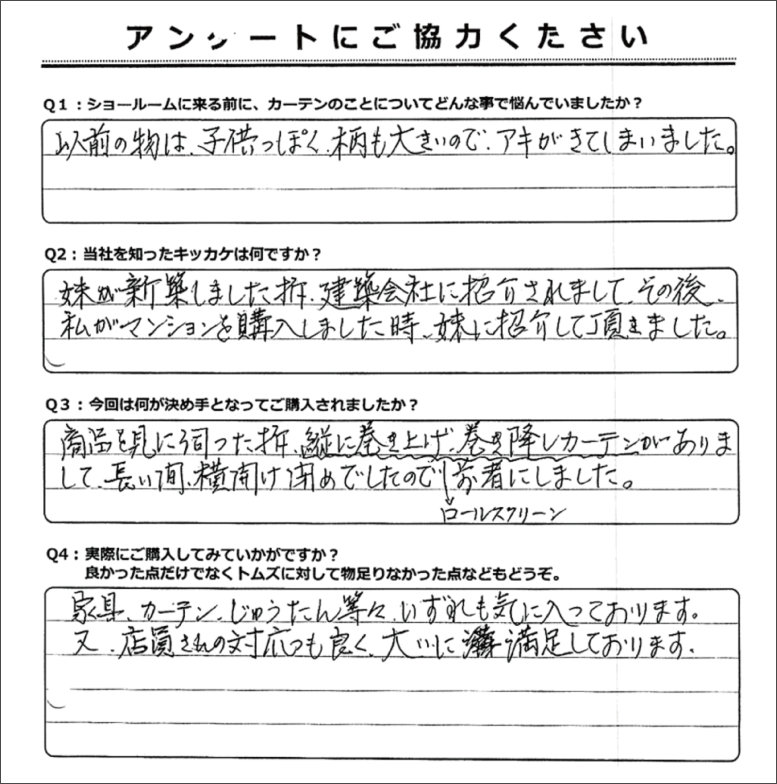 アンケートにご協力ください
Q1：ショールームに来る前に、カーテンのことについてどんな事で悩んでいましたか？
以前の物は、子供っぽく、柄も大きいので、アキがきてしまいました。
Q2：当社を知ったキッカケは何ですか？
妹が新築しました折、建築会社に紹介されまして、その後、
私がマンションを購入しました時、妹に紹介して頂きました。
Q3：今回は何が決め手となってご購入されましたか？
商品を見に伺った折、縦に巻き上げ、巻き降しカーテンがありま
して、長い間、横開け閉めでしたので前者にしました。
ロールスクリーン
Q4：実際にご購入してみていかがですか？
良かった点だけでなくトムズに対して物足りなかった点などもどうぞ。
家具、カーテン、じゅうたん等々、いずれも気に入っております。
又、店員さんの対応も良く、大いに満足しております。